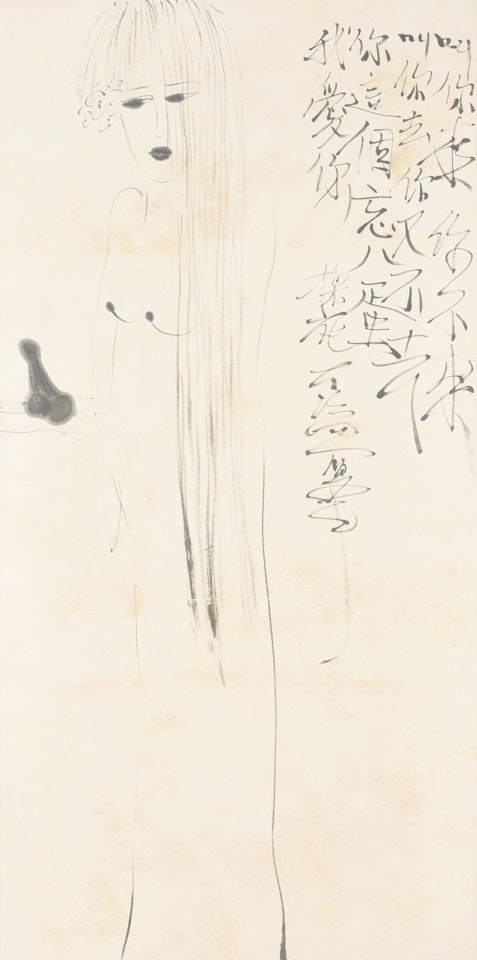 叫你來你不來
叫你去你又不去
你這個忘八蛋
我愛你
採花